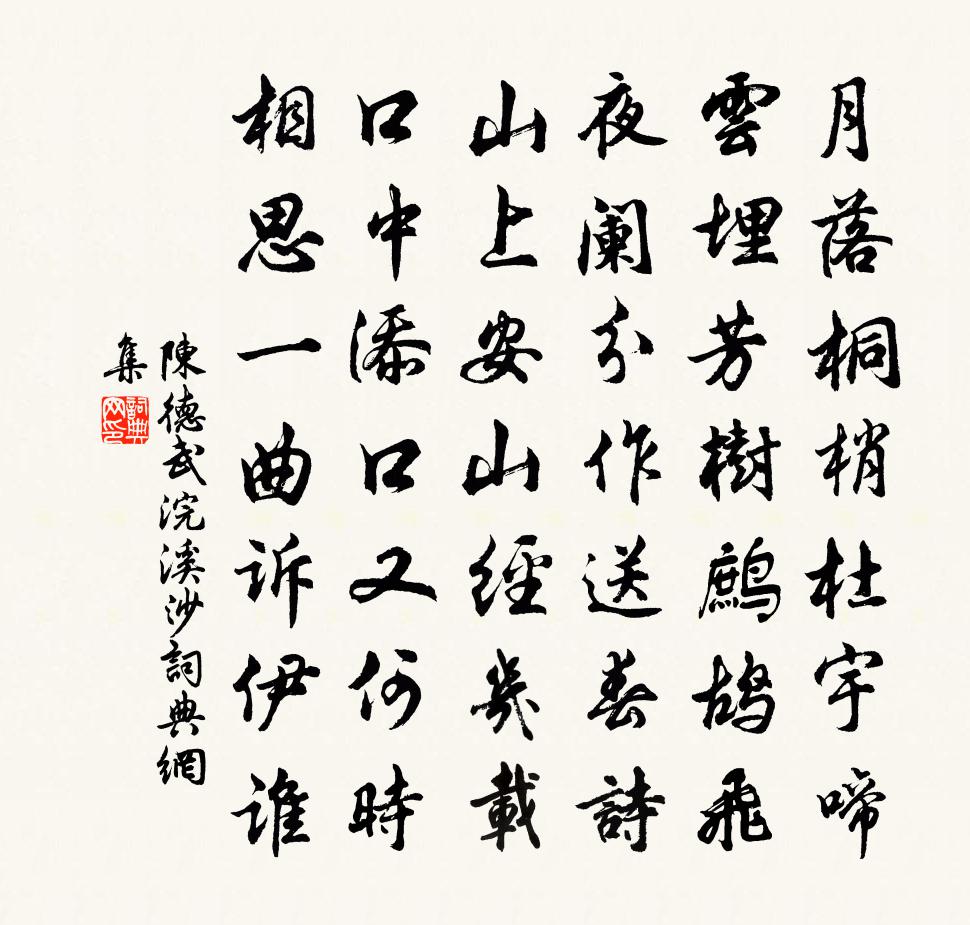 月落桐梢杜宇啼
雲埋芳樹鷓鴣飛
夜闌分作送春詩
山上安山經幾載
口中添口又何時
相思一曲訴伊誰
陳德武浣溪沙詞典網
集
詞典
网印